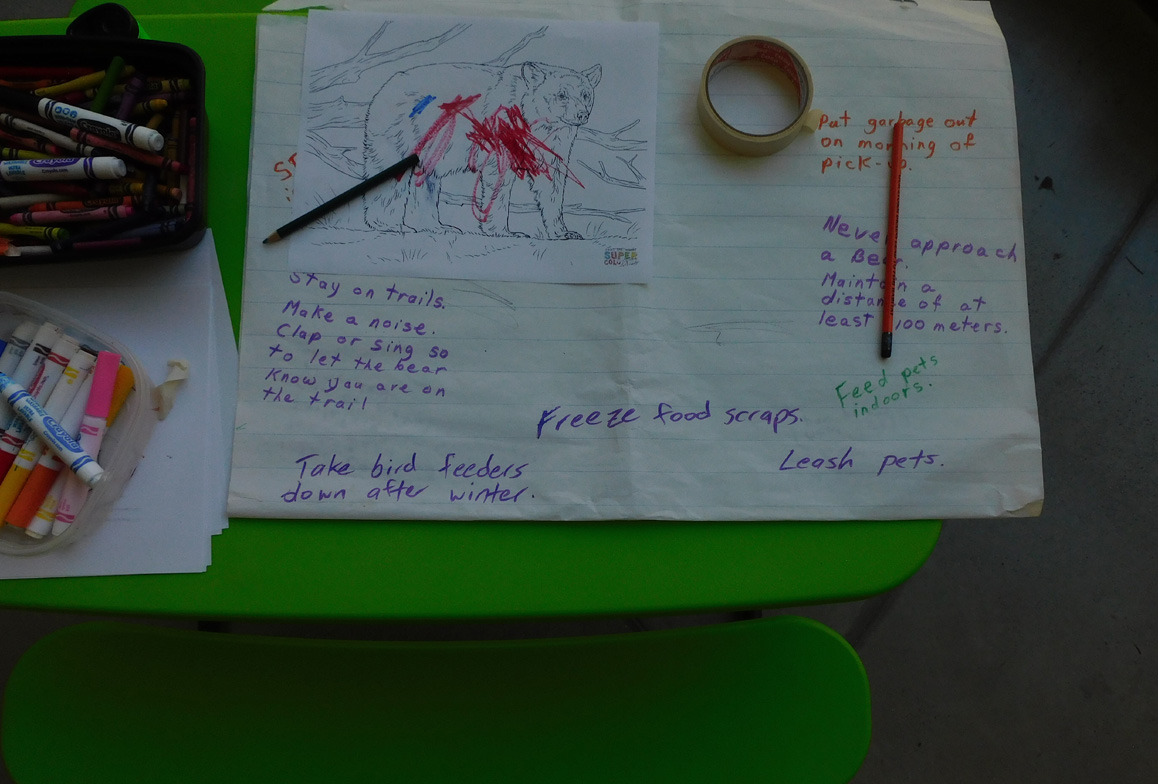 Stay on trails.
Make a noise.
Clap or sing so
to let the bear
Know you are on
the trail
Take bird feeders
down after winter.
Freeze food scraps.
Put garbage out
on morning of
pick-up.
Never approach
a Bear.
Maintain a
distance of at
least 100 meters.
Feed pets
indoors.
Leash pets.
SUPER
Crayola
Crayola
Crayola